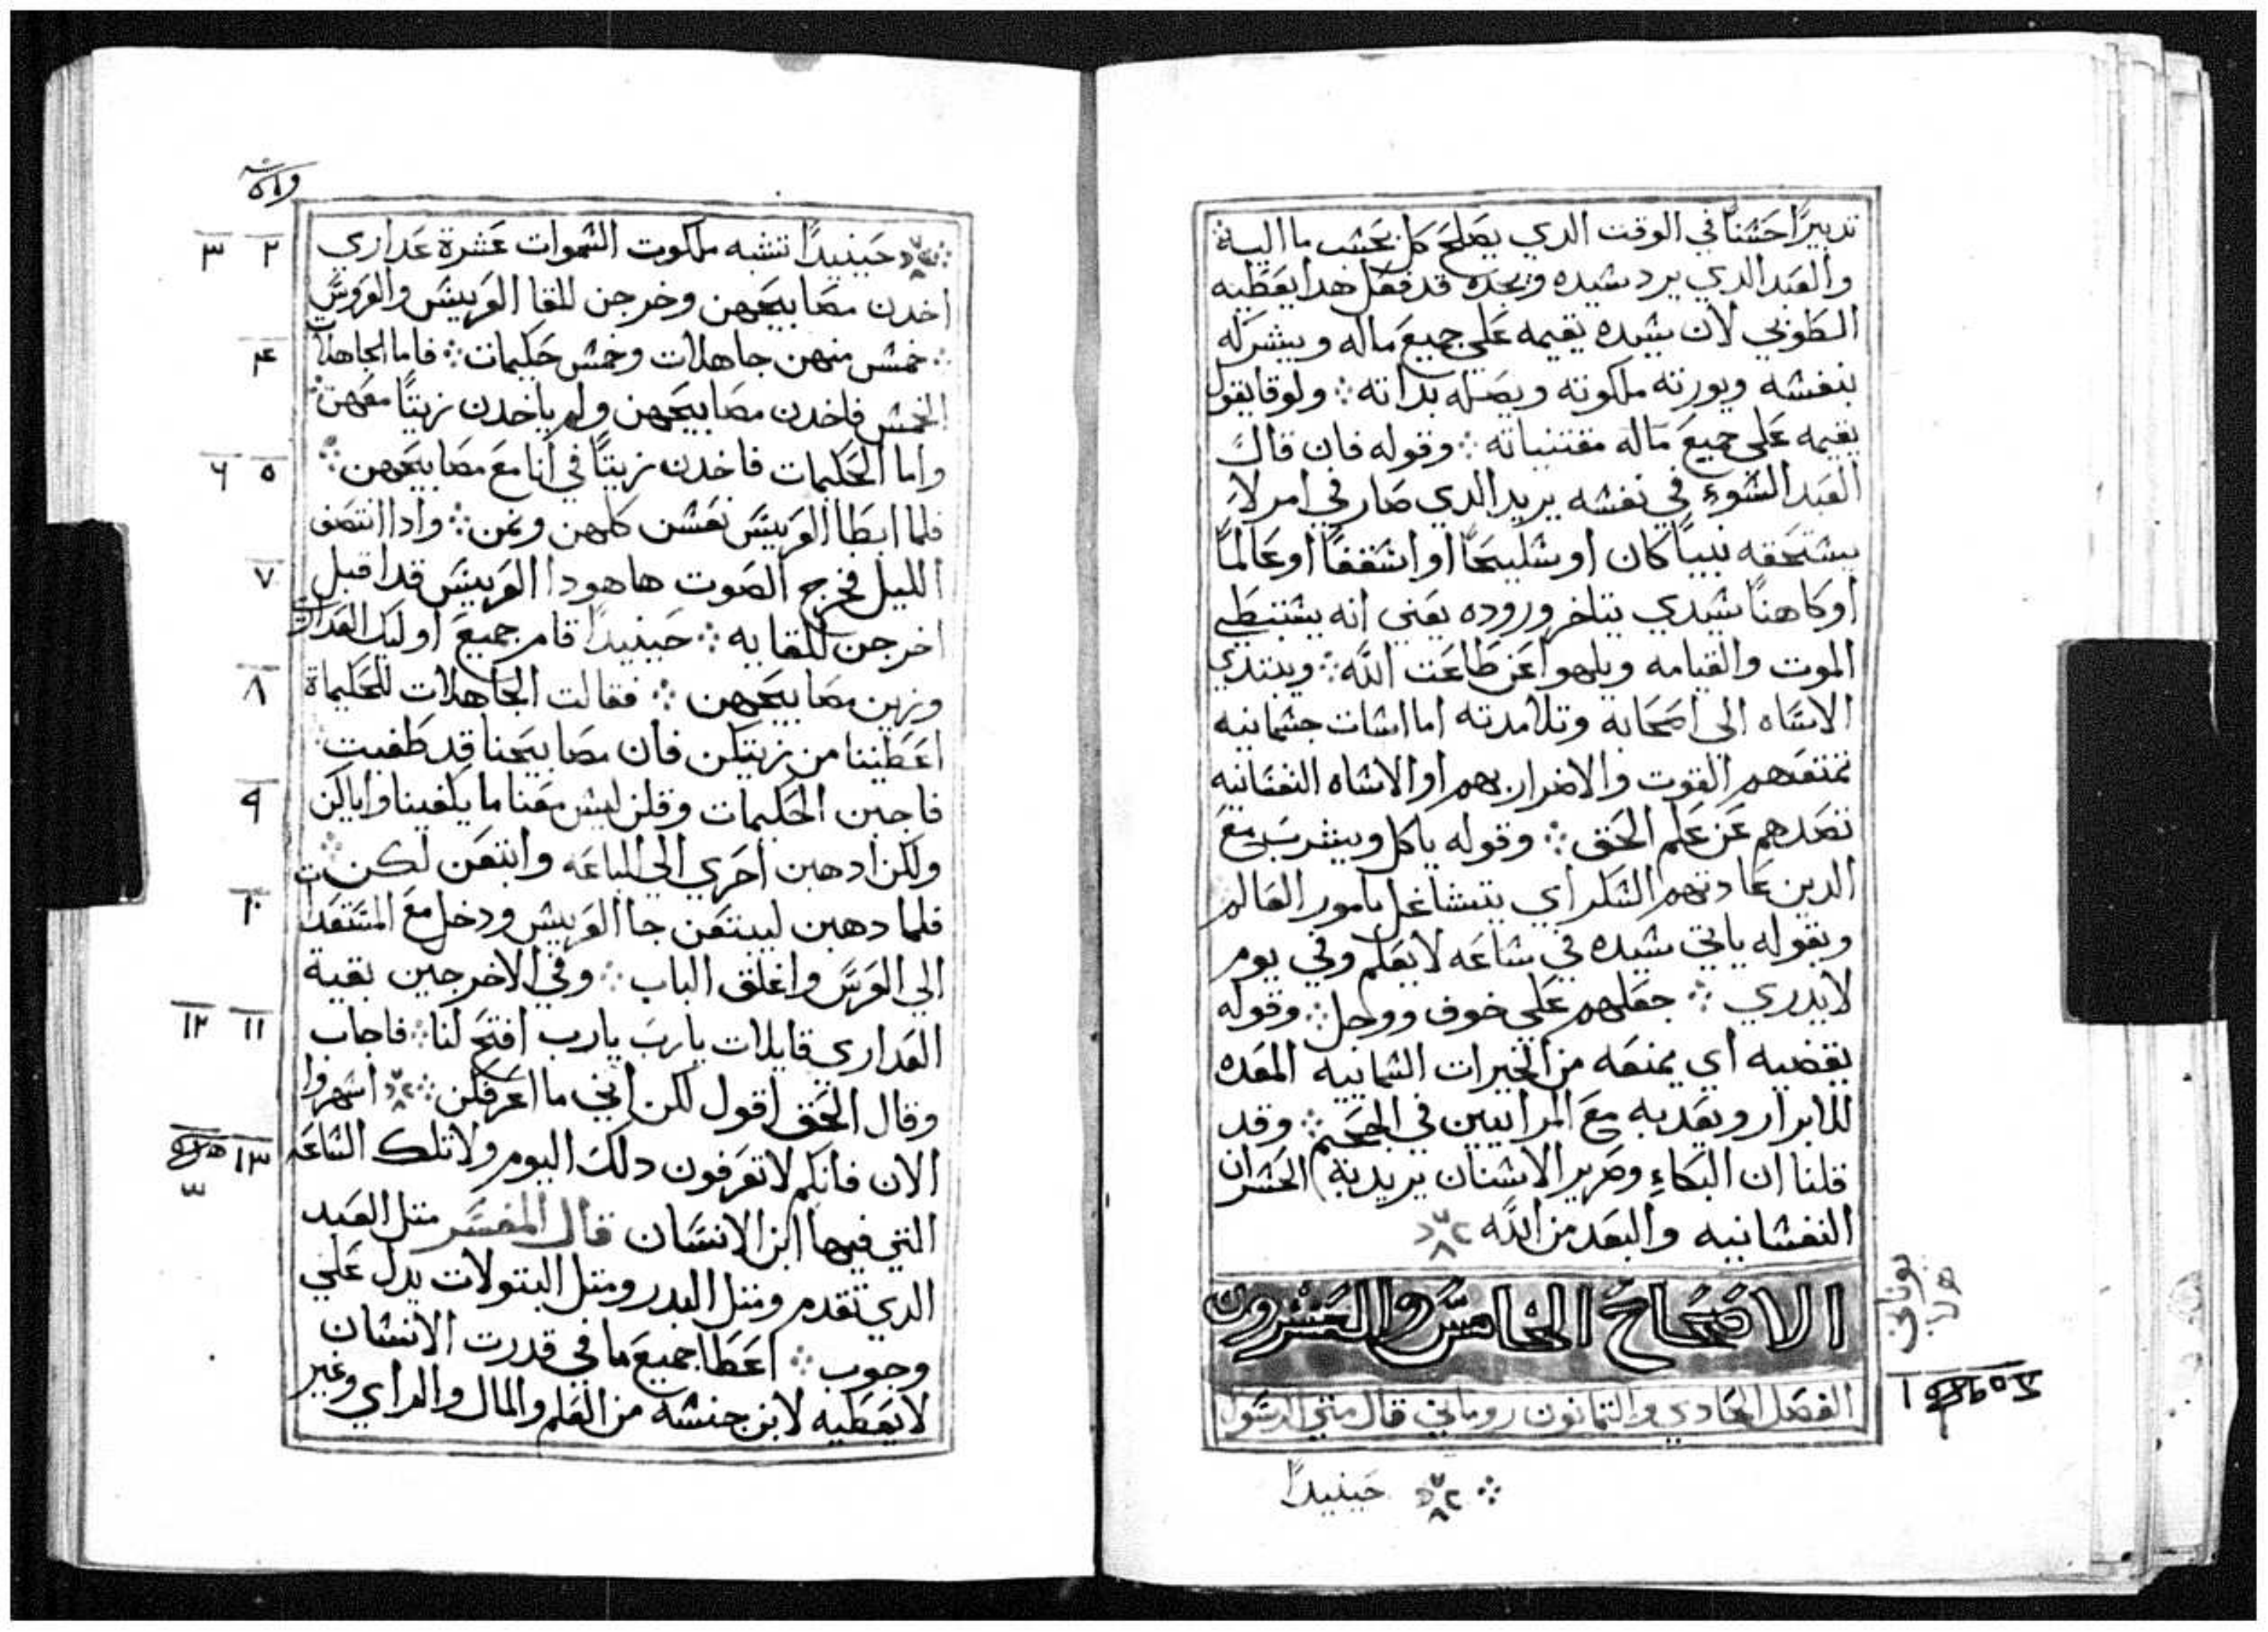 تدبيرًا حسنًا في الوقت الدي يصلح كل بحسب ما اليه
والعبد الدي يرد سيده ويجده قد فعل هدا يعطيه
الطوبي لان سيده يقيمه علي جميع ماله ويبشر له
بنفسه ويورته ملكوته ويصله بداته ∴ ولوقا يقول
يقيمه علي جميع ماله مقتنياته ∴ وقوله فان قال
العبد السوء في نفسه يريد الدي صار في امر لا
يستحقه نبيًا كان او سليحًا او اسقفًا او عالمًا
او كاهنًا سيدي يتاخر وروده يعني انه يستبطي
الموت والقيامه ويلهوا عن طاعت الله ∴ ويبتدي
الاساه الي اصحابه وتلامدته اما اسات جسمانيه
تمنعهم القوت والاضرار بهم او الاساه النفسانيه
تصدهم عن علم الحق ∴ وقوله ياكل ويشرب مع
الدين عادتهم السكر اي يتشاغل بامور العالم
وبقوله ياتي سيده في ساعه لا يعلم وفي يوم
لا يدري ∴ جعلهم علي خوف ووجل ∴ وقوله
يقضيه اي يمنعه من الخيرات السماييه المعده
للابرار ويعدبه مع المراييين في الجحيم ∴ وقد
قلنا ان البكاء وصرير الاسنان يريد به الحسران
النفسانيه والبعد من الله
الاصحاح الخامس والعشرون
الفصل الحادي والتمانون روماني قال متي الرسول
يوناني
حينيدًا
حينيدًا تشبه ملكوت السموات عشرة عداري
٢ ٣
اخدن مصابيحهن وخرجن للقا العريس والعروس
∴ خمس منهن جاهلات وخمس حكيمات ∴ فاما الجاهلات
٤
الخمس فاخدن مصابيحهن ولم ياخدن زيتًا معهن ∴
واما الحكيمات فاخدن زيتًا في انا مع مصابيحهن ∴
٥ ٦
فلما ابطا العريس نعسن كلهن ونمن ∴ وادا انتصف
الليل فخرج الصوت هاهودا العريس قد اقبل
٧
اخرجن للقايه ∴ حينيدًا قام جميع اوليك العداري
وزين مصابيحهن ∴ فقالت الجاهلات للحكيماة
٨
اعطيننا من زيتكن فان مصابيحنا قد طفيت
فاجبن الحكيمات وقلن ليس معنا ما يكفينا واياكن
٩
ولكن ادهبن احري الي الباعه وابتعن لكن ∴
فلما دهبن ليبتعن جا العريس ودخل مع المستعدات
١٠
الي العرس واغلق الباب ∴ وفي الاخر جين بقية
العداري قايلات يارب يارب افتح لنا ∴ فاجاب
١١ ١٢
وقال الحق اقول لكن انني ما اعرفكن ∴ اسهروا
الان فانكم لا تعرفون دلك اليوم ولا تلك الساعه
١٣
التي فيها ابن الانسان قال المفسر متل العبد
الدي تقدم ومتل البدر ومتل البتولات يدل علي
وجوب ∴ اعطا جميع ما في قدرت الانسان
لا يعطيه لابن جنسه من العلم والمال والراي وغير